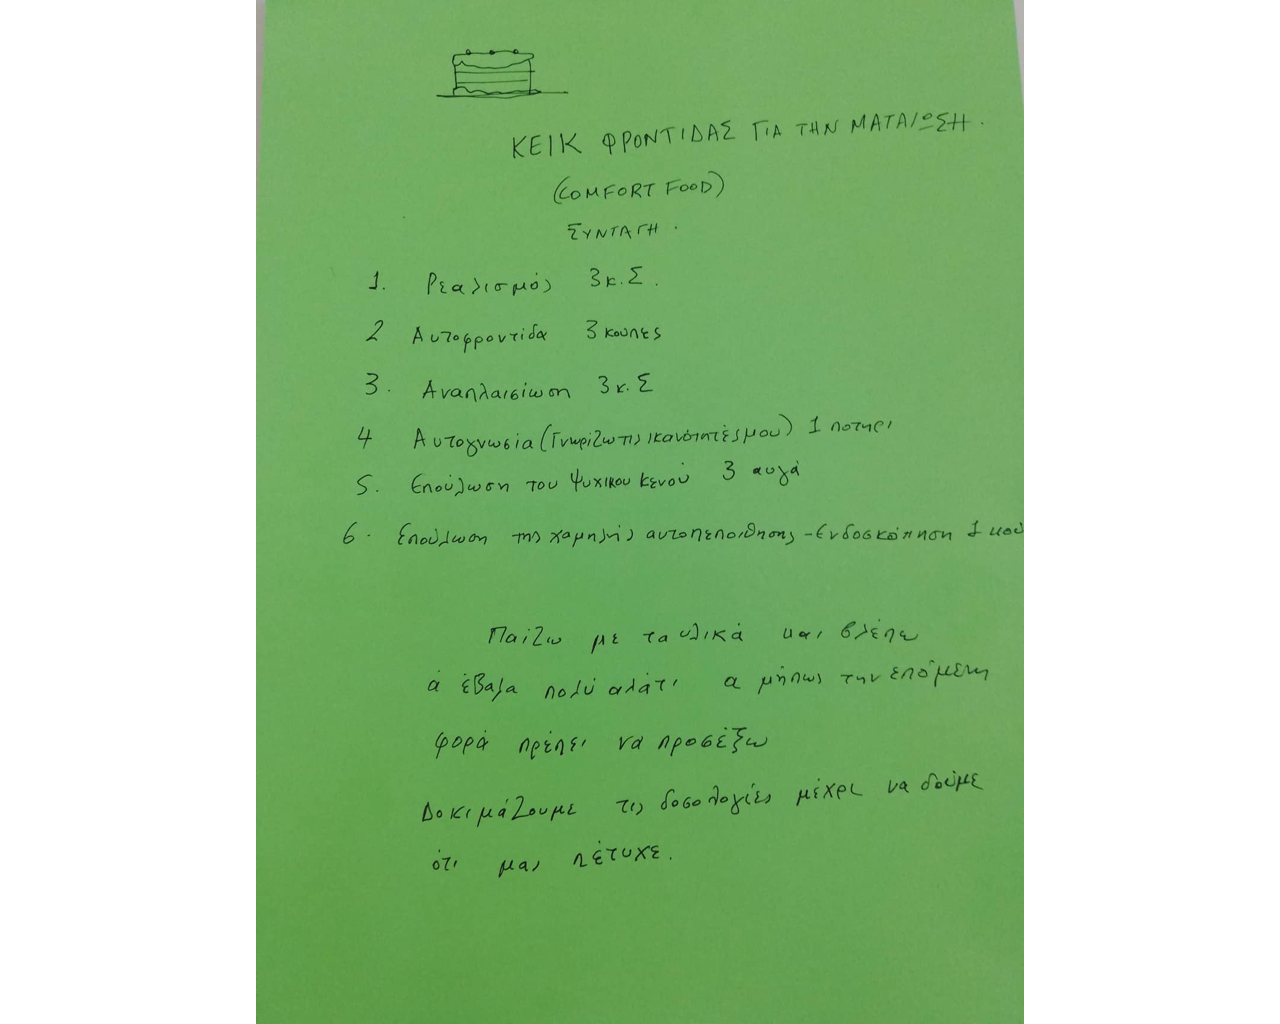 ΚΕΙΚ ΦΡΟΝΤΙΔΑΣ ΓΙΑ ΤΗΝ ΜΑΤΑΙΩΣΗ.
(COMFORT FOOD)
ΣΥΝΤΑΓΗ.
1. Ρεαλισμός 3κ.Σ.
2 Αυτοφροντίδα 3 κουπες
3. Αναπλαισίωση 3κ.Σ
4 Αυτογνωσία (Γνωρίζω τις ικανότητές μου) 1 ποτηρι
5. Επούλωση του Ψυχικου κενού 3 αυγά
6. Επούλωση της χαμηλής αυτοπεποίθησης - Ενδοσκόπηση 1 κού
Παίζω με τα υλικά και βλέπω
ά έβαλα πολύ αλάτι α μήπως την επόμενη
φορά πρέπει να προσέξω
Δοκιμάζουμε τις δοσολογίες μέχρι να δούμε
ότι μας πέτυχε.